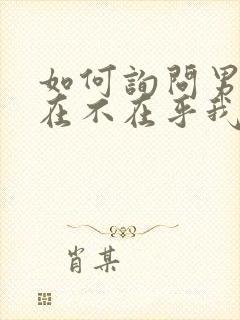 如何詢問男
在不在乎我
肖某